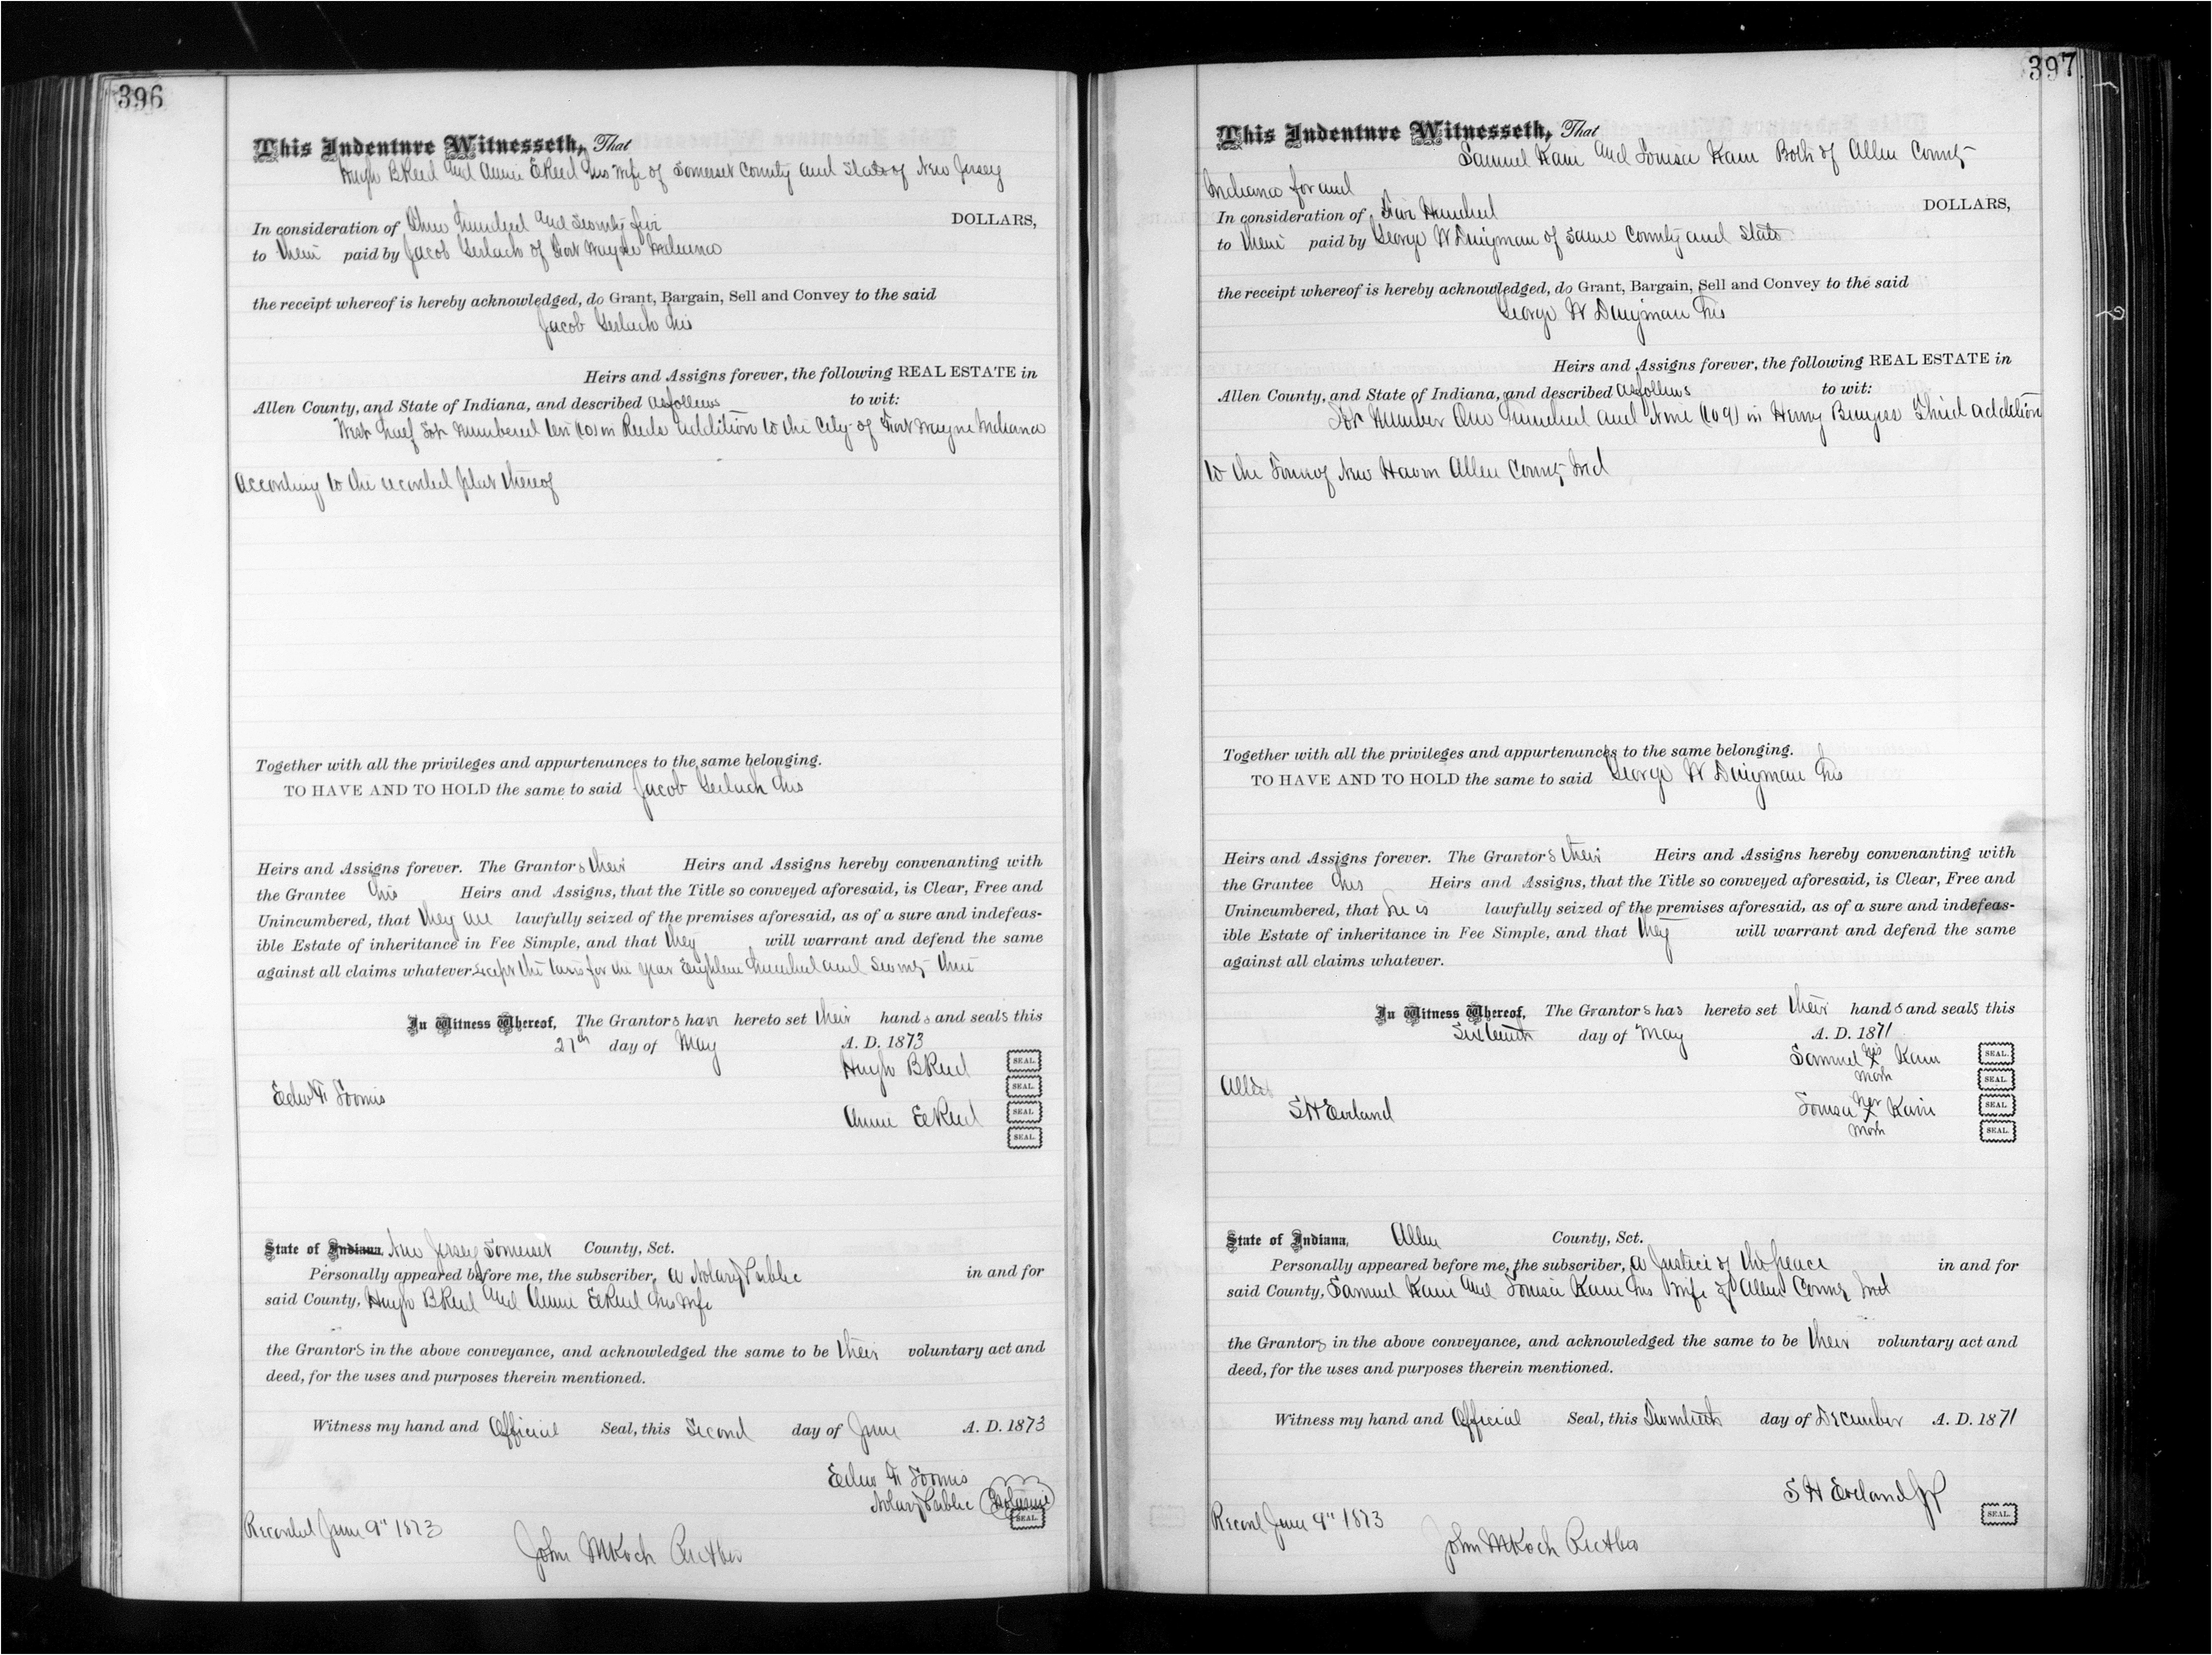 396
This Indenture Witnesseth, That
Hugh B Reed and Annie E Reed his wife of Somerset County and State of New Jersey
In consideration of One Hundred and Seventy five DOLLARS,
to them paid by Jacob Gerlach of Fort Wayne Indiana
the receipt whereof is hereby acknowledged, do Grant, Bargain, Sell and Convey to the said
Jacob Gerlach his
Heirs and Assigns forever, the following REAL ESTATE in
Allen County, and State of Indiana, and described as follows to wit:
West half Lot Numbered ten (10) in Reeds addition to the City of Fort Wayne Indiana
According to the recorded plat thereof
Together with all the privileges and appurtenances to the same belonging.
TO HAVE AND TO HOLD the same to said Jacob Gerlach his
Heirs and Assigns forever. The Grantors their Heirs and Assigns hereby convenanting with
the Grantee his Heirs and Assigns, that the Title so conveyed aforesaid, is Clear, Free and
Unincumbered, that they are lawfully seized of the premises aforesaid, as of a sure and indefeas-
ible Estate of inheritance in Fee Simple, and that they will warrant and defend the same
against all claims whatever except the taxes for the year Eighteen hundred and Seventy three
In Witness Whereof, The Grantors have hereto set their hands and seals this
27th day of May A. D. 1873
Hugh B Reed SEAL.
SEAL.
Edw F Loomis
Annie E Reed SEAL
SEAL.
State of Indiana, New Jersey Somerset County, Sct.
Personally appeared before me, the subscriber, a Notary Public in and for
said County, Hugh B Reed and Annie E Reed his wife
the Grantors in the above conveyance, and acknowledged the same to be their voluntary act and
deed, for the uses and purposes therein mentioned.
Witness my hand and Official Seal, this Second day of June A. D. 1873
Edw F Loomis
Notary Public
SEAL.
Recorded June 9" 1873
John M Koch
397
This Indenture Witnesseth, That
Samuel Kain and Louisa Kain Both of Allen County
Indiana for and
In consideration of Five Hundred DOLLARS,
to them paid by George W Dingman of same County and State
the receipt whereof is hereby acknowledged, do Grant, Bargain, Sell and Convey to the said
George W Dingman his
Heirs and Assigns forever, the following REAL ESTATE in
Allen County, and State of Indiana, and described as follows to wit:
Lot Number One hundred and Nine (109) in Henry Burgess Third addition
to the Town of New Haven Allen County Ind
Together with all the privileges and appurtenances to the same belonging.
TO HAVE AND TO HOLD the same to said George W Dingman his
Heirs and Assigns forever. The Grantors their Heirs and Assigns hereby convenanting with
the Grantee his Heirs and Assigns, that the Title so conveyed aforesaid, is Clear, Free and
Unincumbered, that he is lawfully seized of the premises aforesaid, as of a sure and indefeas-
ible Estate of inheritance in Fee Simple, and that they will warrant and defend the same
against all claims whatever.
In Witness Whereof, The Grantors has hereto set their hands and seals this
Sixteenth day of May A. D. 1871
Samuel his X mark Kain SEAL.
SEAL.
Attest
S H Eveland
Louisa her X mark Kain SEAL
SEAL.
State of Indiana, Allen County, Sct.
Personally appeared before me, the subscriber, a Justice of the peace in and for
said County, Samuel Kain and Louisa Kain his wife of Allen County Ind
the Grantors in the above conveyance, and acknowledged the same to be their voluntary act and
deed, for the uses and purposes therein mentioned.
Witness my hand and Official Seal, this Twentieth day of December A. D. 1871
S H Eveland JP
SEAL.
Record June 9" 1873
John M Koch